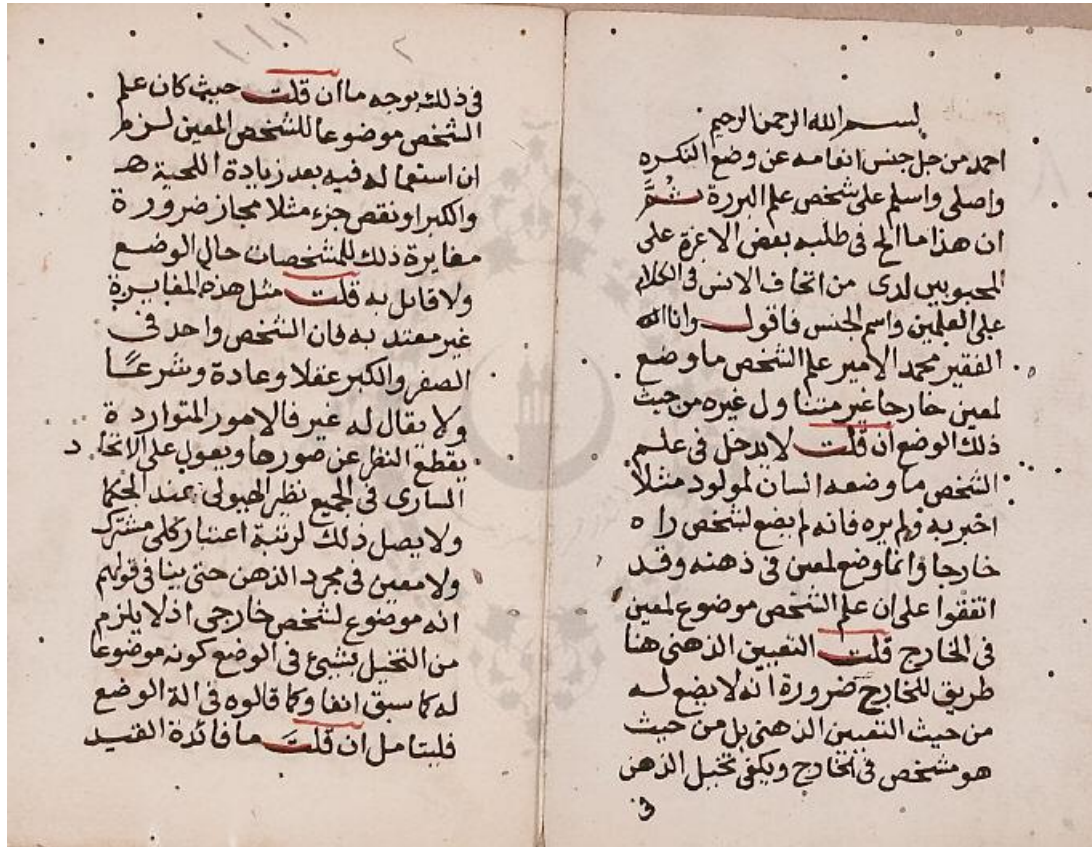 بسم الله الرحمن الرحيم
احمد من جل جنس انعامه عن وضع النكره
واصلى واسلم على شخص علم البررة ثُمَّ
ان هذا ما الح فى طلبه بعض الاعزة على
المحبوبين لدى من اتحاف الانس فى الكلام
على العلمين واسم الجنس فاقول وانا
الفقير محمد الامير علم الشخص ما وضع
لمعين خارجا غير متناول غيره من حيث
ذلك الوضع ان قلت لا يدخل فى علم
الشخص ما وضعه انسان لمولود مثلا
اخبر به ولم يره فانه لم يضع لشخص راه
خارجا وانما وضع لمعين فى ذهنه وقد
اتفقوا على ان علم الشخص موضوع لمعين
فى الخارج قلت التعيين الذهنى هنا
طريق للخارج ضرورة انه لا يضع له
من حيث التعيين الذهنى بل من حيث
هو مشخص فى الخارج ويكفى تخيل الذهن
فى
٢
١١١
فى ذلك بوجه ما ان قلت حيث كان علم
الشخص موضوعا للشخص المعين لزم
ان استعماله فيه بعد زيادة اللحية
والكبر او نقص جزء مثلا مجاز ضرورة
مغايرة ذلك للمشخصات حال الوضع
ولا قايل به قلت مثل هذه المغايرة
غير معتد به فان الشخص واحد فى
الصغر والكبر عقلا وعادة وشرعًا
ولا يقال له غير فالامور المتواردة
يقطع النظر عن صورها ويعول على الاتحاد
السارى فى الجميع نظير الهيولى عند الحكما
ولا يصل ذلك لرتبة اعتبار كلى مشترك
ولا معين فى مجرد الذهن حتى ينافى قولهم
انه موضوع لشخص خارجى اذ لا يلزم
من التخيل بشيئ فى الوضع كونه موضوعا
له كما سبق انفا وكما قالوه فى الة الوضع
فليتامل ان قلتَ ما فائدة القيد